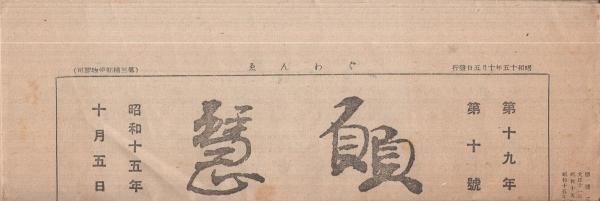 昭和十五年十月五日發行
ぐわんゑ
(第三種郵便物認可)
第十九年
第十號
願慧
昭和十五年
十月五日